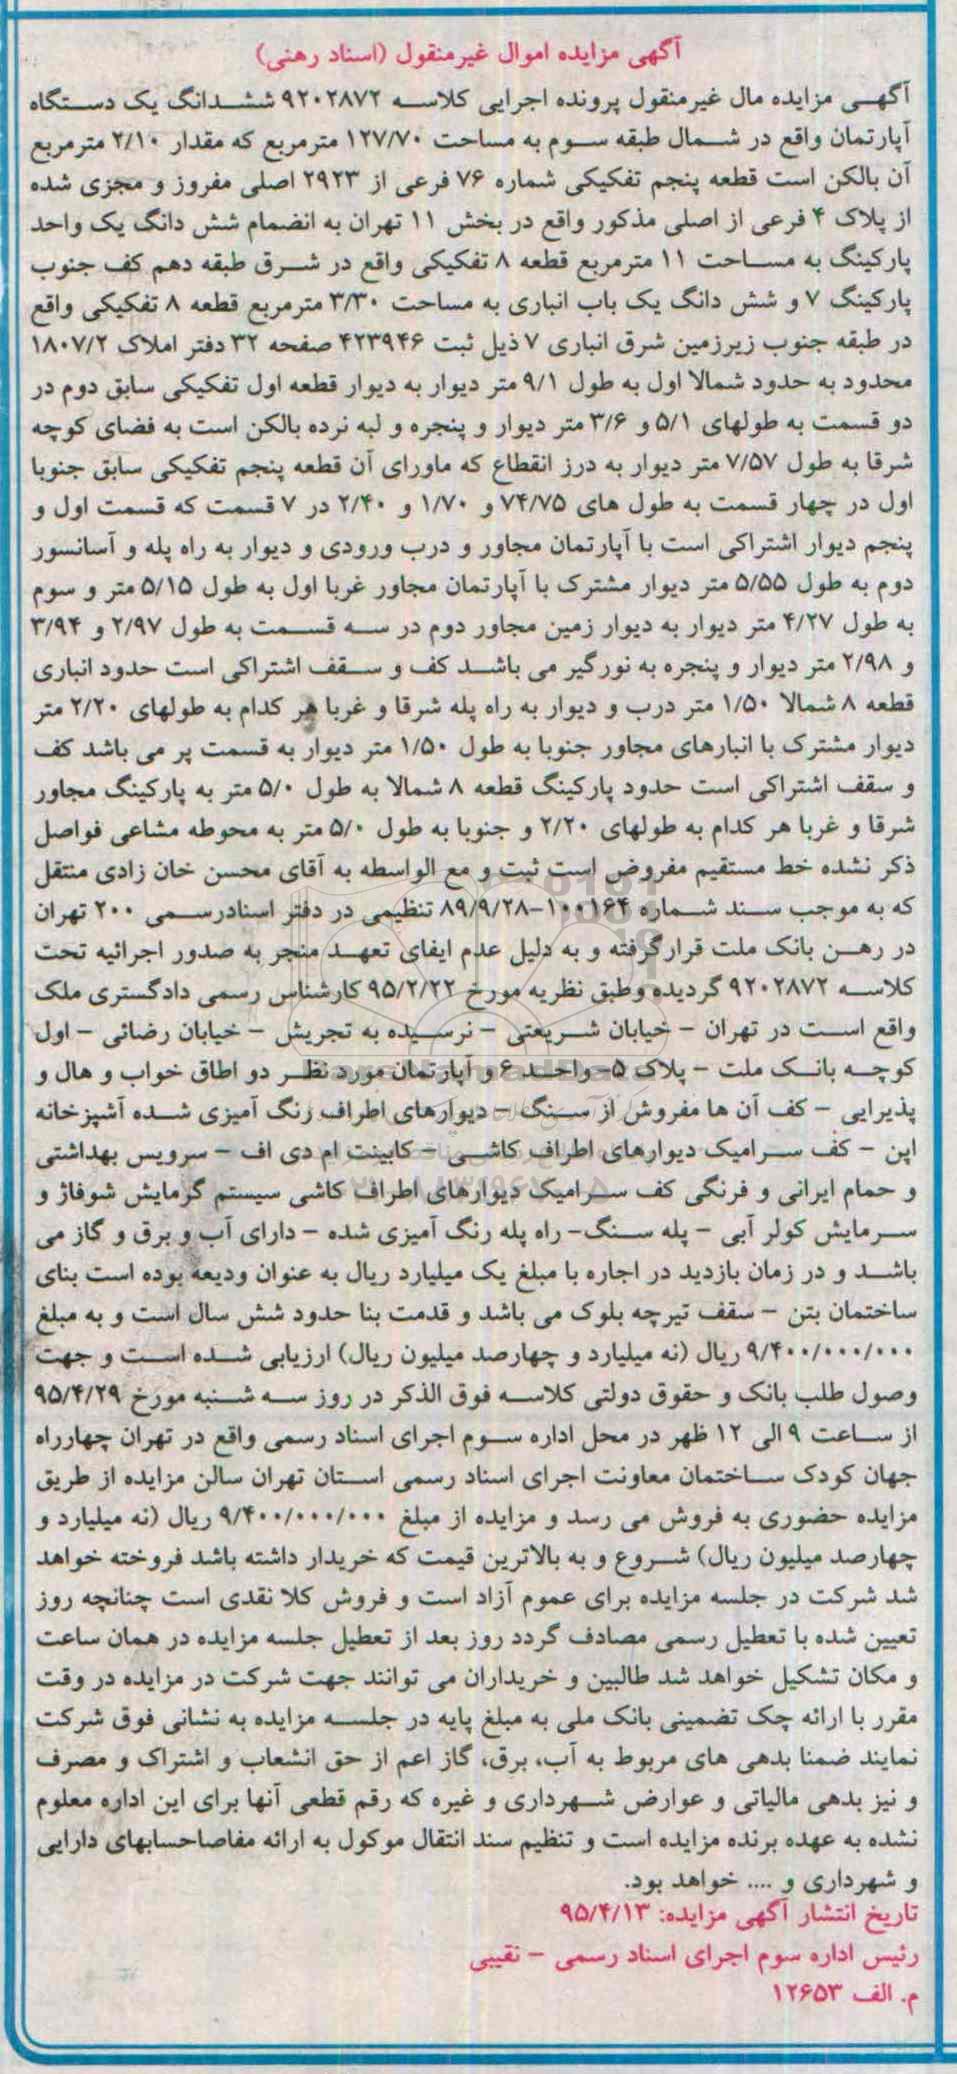 آگهی مزایده اموال غیرمنقول (اسناد رهنی)
آگهی مزایده مال غیرمنقول پرونده اجرایی کلاسه ۹۲۰۲۸۷۲ ششدانگ یک دستگاه
آپارتمان واقع در شمال طبقه سوم به مساحت ۱۲۷/۷۰ مترمربع که مقدار ۲/۱۰ مترمربع
آن بالکن است قطعه پنجم تفکیکی شماره ۷۶ فرعی از ۲۹۲۳ اصلی مفروز و مجزی شده
از پلاک ۴ فرعی از اصلی مذکور واقع در بخش ۱۱ تهران به انضمام شش دانگ یک واحد
پارکینگ به مساحت ۱۱ مترمربع قطعه ۸ تفکیکی واقع در شرق طبقه دهم کف جنوب
پارکینگ ۷ و شش دانگ یک باب انباری به مساحت ۳/۳۰ مترمربع قطعه ۸ تفکیکی واقع
در طبقه جنوب زیرزمین شرق انباری ۷ ذیل ثبت ۴۲۳۹۴۶ صفحه ۳۲ دفتر املاک ۱۸۰۷/۲
محدود به حدود شمالا اول به طول ۹/۱ متر دیوار به دیوار قطعه اول تفکیکی سابق دوم در
دو قسمت به طولهای ۵/۱ و ۳/۶ متر دیوار و پنجره و لبه نرده بالکن است به فضای کوچه
شرقا به طول ۷/۵۷ متر دیوار به درز انقطاع که ماورای آن قطعه پنجم تفکیکی سابق جنوبا
اول در چهار قسمت به طول های ۷۴/۷۵ و ۱/۷۰ و ۲/۴۰ در ۷ قسمت که قسمت اول و
پنجم دیوار اشتراکی است با آپارتمان مجاور و درب ورودی و دیوار به راه پله و آسانسور
دوم به طول ۵/۵۵ متر دیوار مشترک با آپارتمان مجاور غربا اول به طول ۵/۱۵ متر و سوم
به طول ۴/۲۷ متر دیوار به دیوار زمین مجاور دوم در سه قسمت به طول ۲/۹۷ و ۳/۹۴
و ۲/۹۸ متر دیوار و پنجره به نورگیر می باشد کف و سقف اشتراکی است حدود انباری
قطعه ۸ شمالا ۱/۵۰ متر درب و دیوار به راه پله شرقا و غربا هر کدام به طولهای ۲/۲۰ متر
دیوار مشترک با انبارهای مجاور جنوبا به طول ۱/۵۰ متر دیوار به قسمت پر می باشد کف
و سقف اشتراکی است حدود پارکینگ قطعه ۸ شمالا به طول ۵/۰ متر به پارکینگ مجاور
شرقا و غربا هر کدام به طولهای ۲/۲۰ و جنوبا به طول ۵/۰ متر به محوطه مشاعی فواصل
ذکر نشده خط مستقیم مفروض است ثبت و مع الواسطه به آقای محسن خان زادی منتقل
که به موجب سند شماره ۱۰۰۱۶۴-۸۹/۹/۲۸ تنظیمی در دفتر اسنادرسمی ۲۰۰ تهران
در رهن بانک ملت قرارگرفته و به دلیل عدم ایفای تعهد منجر به صدور اجرائیه تحت
کلاسه ۹۲۰۲۸۷۲ گردیده وطبق نظریه مورخ ۹۵/۲/۲۲ کارشناس رسمی دادگستری ملک
واقع است در تهران - خیابان شریعتی - نرسیده به تجریش - خیابان رضائی - اول
کوچه بانک ملت - پلاک ۵- واحد ۶ و آپارتمان مورد نظر دو اطاق خواب و هال و
پذیرایی - کف آن ها مفروش از سنگ - دیوارهای اطراف رنگ آمیزی شده آشپزخانه
اپن - کف سرامیک دیوارهای اطراف کاشی - کابینت ام دی اف - سرویس بهداشتی
و حمام ایرانی و فرنگی کف سرامیک دیوارهای اطراف کاشی سیستم گرمایش شوفاژ و
سرمایش کولر آبی - پله سنگ- راه پله رنگ آمیزی شده - دارای آب و برق و گاز می
باشد و در زمان بازدید در اجاره با مبلغ یک میلیارد ریال به عنوان ودیعه بوده است بنای
ساختمان بتن - سقف تیرچه بلوک می باشد و قدمت بنا حدود شش سال است و به مبلغ
۹/۴۰۰/۰۰۰/۰۰۰ ریال (نه میلیارد و چهارصد میلیون ریال) ارزیابی شده است و جهت
وصول طلب بانک و حقوق دولتی کلاسه فوق الذکر در روز سه شنبه مورخ ۹۵/۴/۲۹
از ساعت ۹ الی ۱۲ ظهر در محل اداره سوم اجرای اسناد رسمی واقع در تهران چهارراه
جهان کودک ساختمان معاونت اجرای اسناد رسمی استان تهران سالن مزایده از طریق
مزایده حضوری به فروش می رسد و مزایده از مبلغ ۹/۴۰۰/۰۰۰/۰۰۰ ریال (نه میلیارد و
چهارصد میلیون ریال) شروع و به بالاترین قیمت که خریدار داشته باشد فروخته خواهد
شد شرکت در جلسه مزایده برای عموم آزاد است و فروش کلا نقدی است چنانچه روز
تعیین شده با تعطیل رسمی مصادف گردد روز بعد از تعطیل جلسه مزایده در همان ساعت
و مکان تشکیل خواهد شد طالبین و خریداران می توانند جهت شرکت در مزایده در وقت
مقرر با ارائه چک تضمینی بانک ملی به مبلغ پایه در جلسه مزایده به نشانی فوق شرکت
نمایند ضمنا بدهی های مربوط به آب، برق، گاز اعم از حق انشعاب و اشتراک و مصرف
و نیز بدهی مالیاتی و عوارض شهرداری و غیره که رقم قطعی آنها برای این اداره معلوم
نشده به عهده برنده مزایده است و تنظیم سند انتقال موکول به ارائه مفاصاحسابهای دارایی
و شهرداری و .... خواهد بود.
تاریخ انتشار آگهی مزایده: ۹۵/۴/۱۳
رئیس اداره سوم اجرای اسناد رسمی - نقیبی
م. الف ۱۲۶۵۳